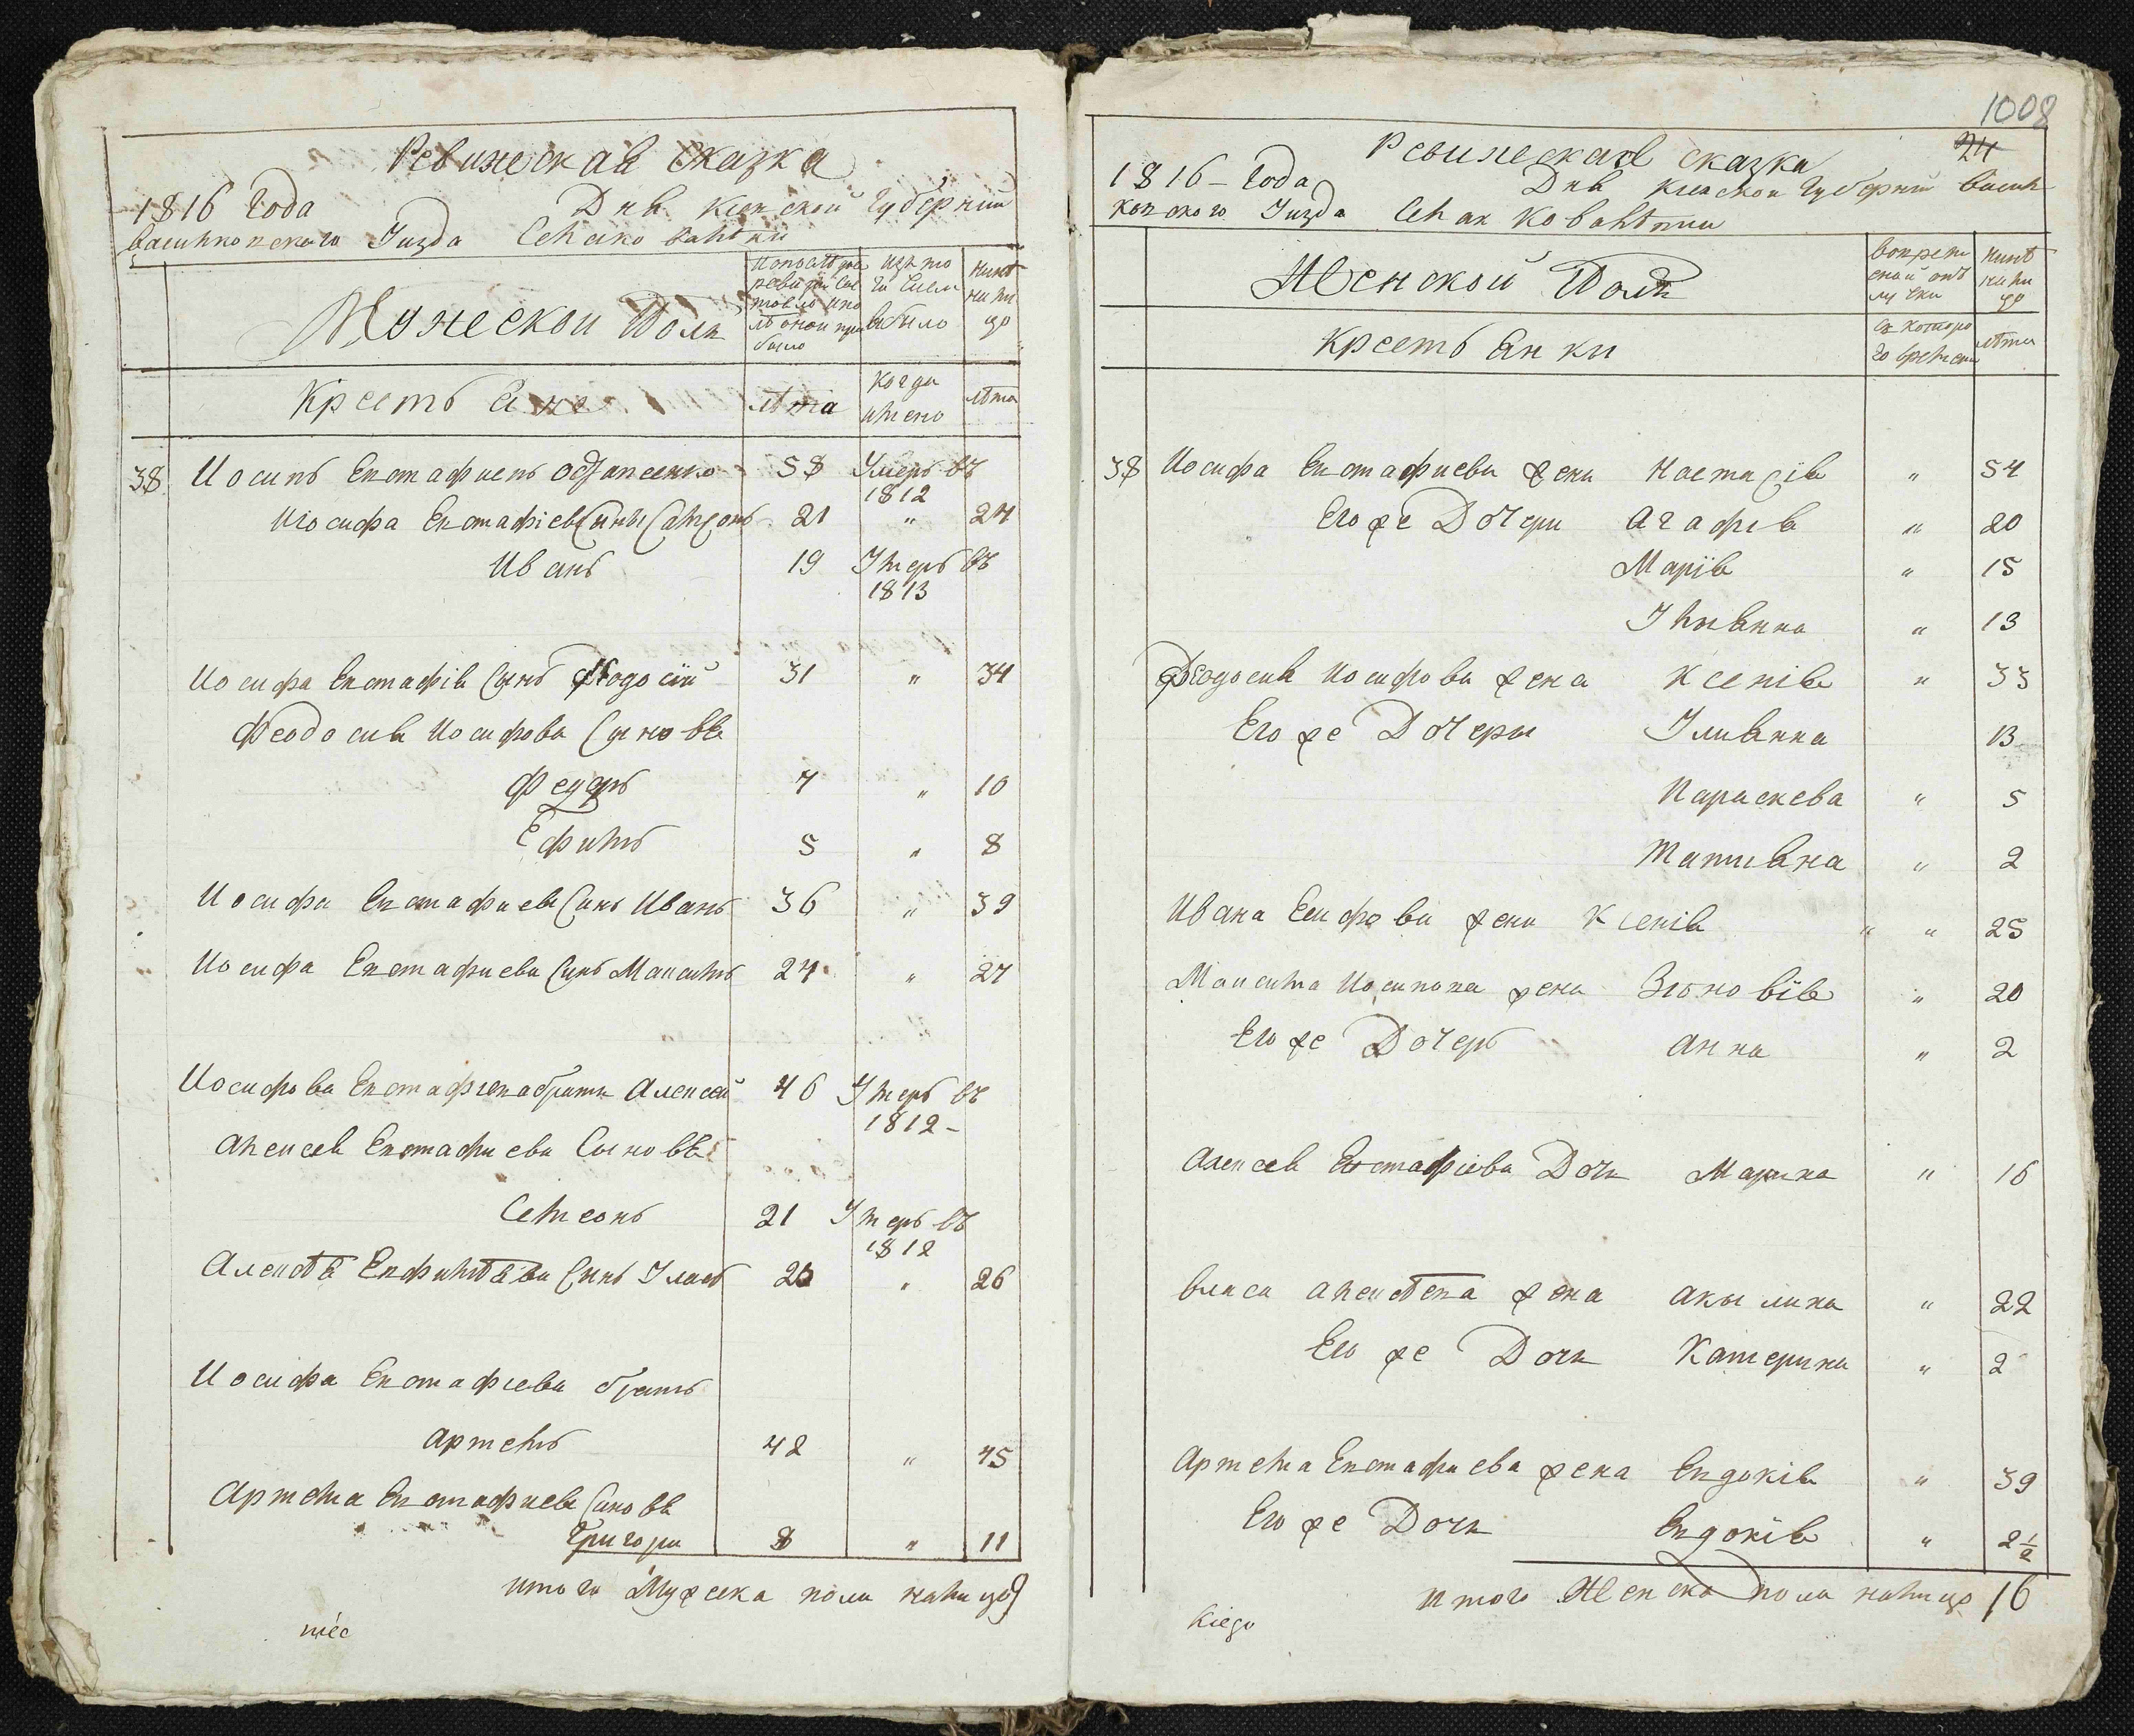 Ревижеская сказка
1816 Года Дня Киевской Губернии
васильковского Уизда Села ковалѣвки
Мужескои Полъ
Изъ то
го числа
выбило
Нинѣ
на ли
цо
Крестьяне
лѣта
когда
имено
лѣта
38 Иосипъ Евстафиевъ 58 Умеръ въ
1812
Иосифа Евстафіева Синъ Самсонъ 21 " 24
Иванъ 19 Умеръ въ
1813
Иосифа Евстафія Сынъ Феодосій 31 " 34
Феодосия Иосифова Сыновя
Федоръ 7 " 10
Ефимъ 5 " 8
Иосифа Евстафиева Синъ Иванъ 36 " 39
Иосифа Евстафиева Синъ Максимъ 24 " 27
Иосифова Евстафиева братъ Алексей 46 Умеръ въ
1812
Алексея Евстафиева Сыновя
Семеонъ 21 Умеръ въ
1812
Синъ 26
Иосифа Евстафиева братъ
Артемъ 42 " 45
Артема Евстафиева Синовя
Григори 8 " 11
итого Мужеска пола налицо 9
mée
1008
24
Ревижеская сказка
1816 – Года Дня Киевской Губернии Василь
ковского Уизда Села Ковалѣвки
Женской Полъ
вовреме
ной отъ
лучки
Нинѣ
на ли
цо
Крестьянки
съ которо
го времени
лѣта
38 Иосифа Евстафиева жена Настасія " 54
Его же Дочери Агафія " 20
Марія " 15
Улиянна " 13
Феодосия Иосифова жена Ксенія " 33
Его же Дочеры Улиянна 13
Параскева " 5
Татияна " 2
Ивана Есифова жена Ксенія " " 25
Максима Иосипова жена Зѣновія " 20
Его же Дочеръ Анна " 2
Алексея Евстафиева Дочь Марина " 16
Власа Алексѣева жена Акылина " 22
Его же Дочь Катерина " 2
Артема Евстафиева жена Евдокія " 39
Его же Дочь Евдокія " 2½
итого Женска пола налицо 16
Kiego